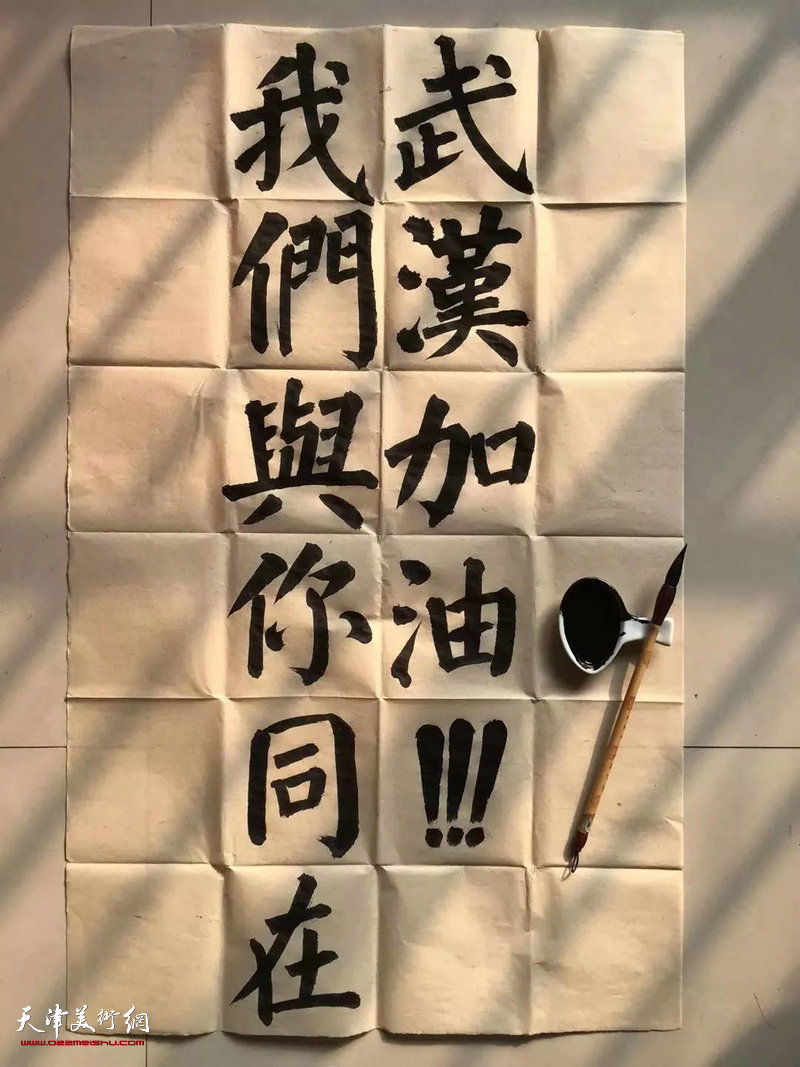 武漢加油!!!
我們與你同在
天津美術網
www.022meishu.com